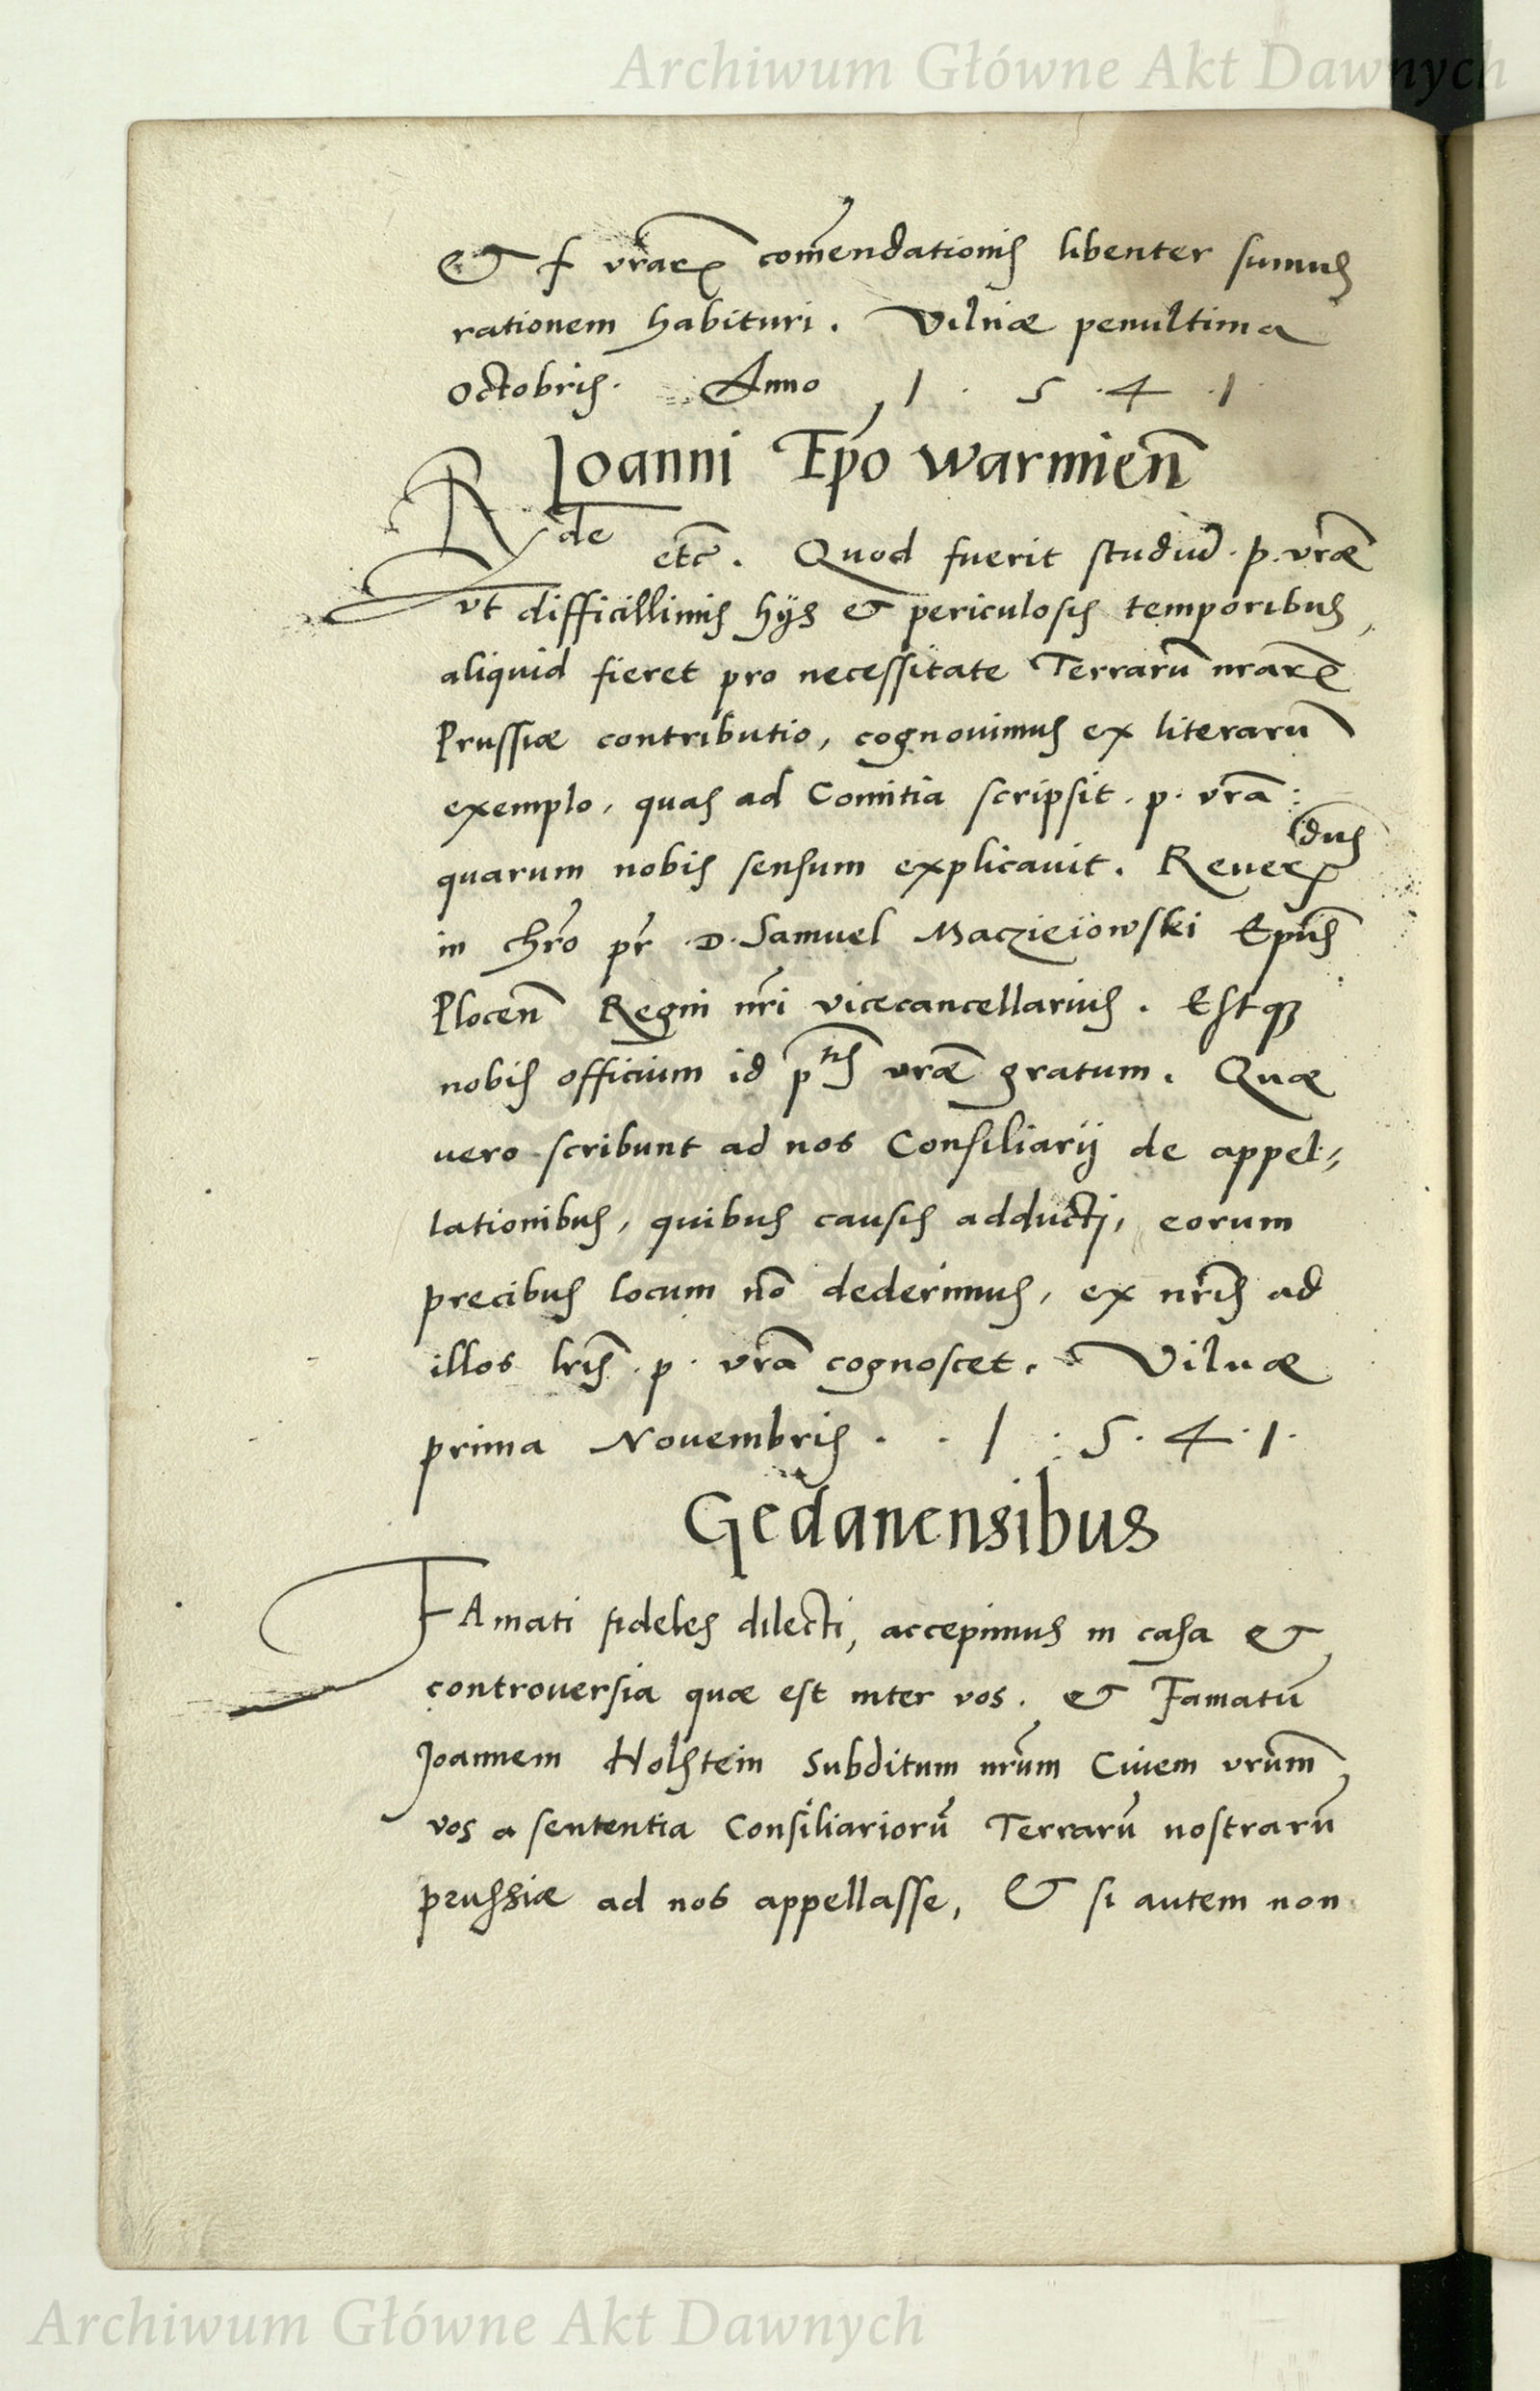 Archiwum Główne Akt Dawnych
& f vrarꝝ com̃endationis libenter sumus
rationem habituri. Vilnæ penultima
Octobris. Anno 1.5.4.1
Ioanni Ep̃o warmieñ
Rde etc̃. Quod fuerit studiũ. p. vr̃æ
vt difficillimis hijs & periculosis temporibus,
aliquid fieret pro necessitate Terrarũ nrarꝝ
Prussiæ contributio, cognouimus ex literarũ
exemplo, quas ad Comitia scripsit. p. vr̃a:
quarum nobis sensum explicauit. Reuerdus
in chr̃o pr̃ .D. Samuel Maczieiowski Ep̃us
Ploceñ Regni nr̃i vicecancellarius. Estqꝫ
nobis officium id ptis vræ̃ gratum. Quæ
uero scribunt ad nos Consiliarij de appel-
lationibus, quibus causis adducti, eorum
precibus locum nõ dederimus, ex nr̃is ad
illos lr̃is .p. vr̃a cognoscet. Vilnæ
prima Nouembris. . 1.5.4.1.
Gedanensibus
FAmati fideles dilecti, accepimus in casa &
controuersia quæ est inter vos. & Famatũ
Joannem Holstein Subditum nr̃um Ciuem vrum̃,
vos a sententia Consiliariorũ Terrarũ nostrarũ
prussiæ ad nos appellasse, & si autem non
Archiwum Główne Akt Dawnych